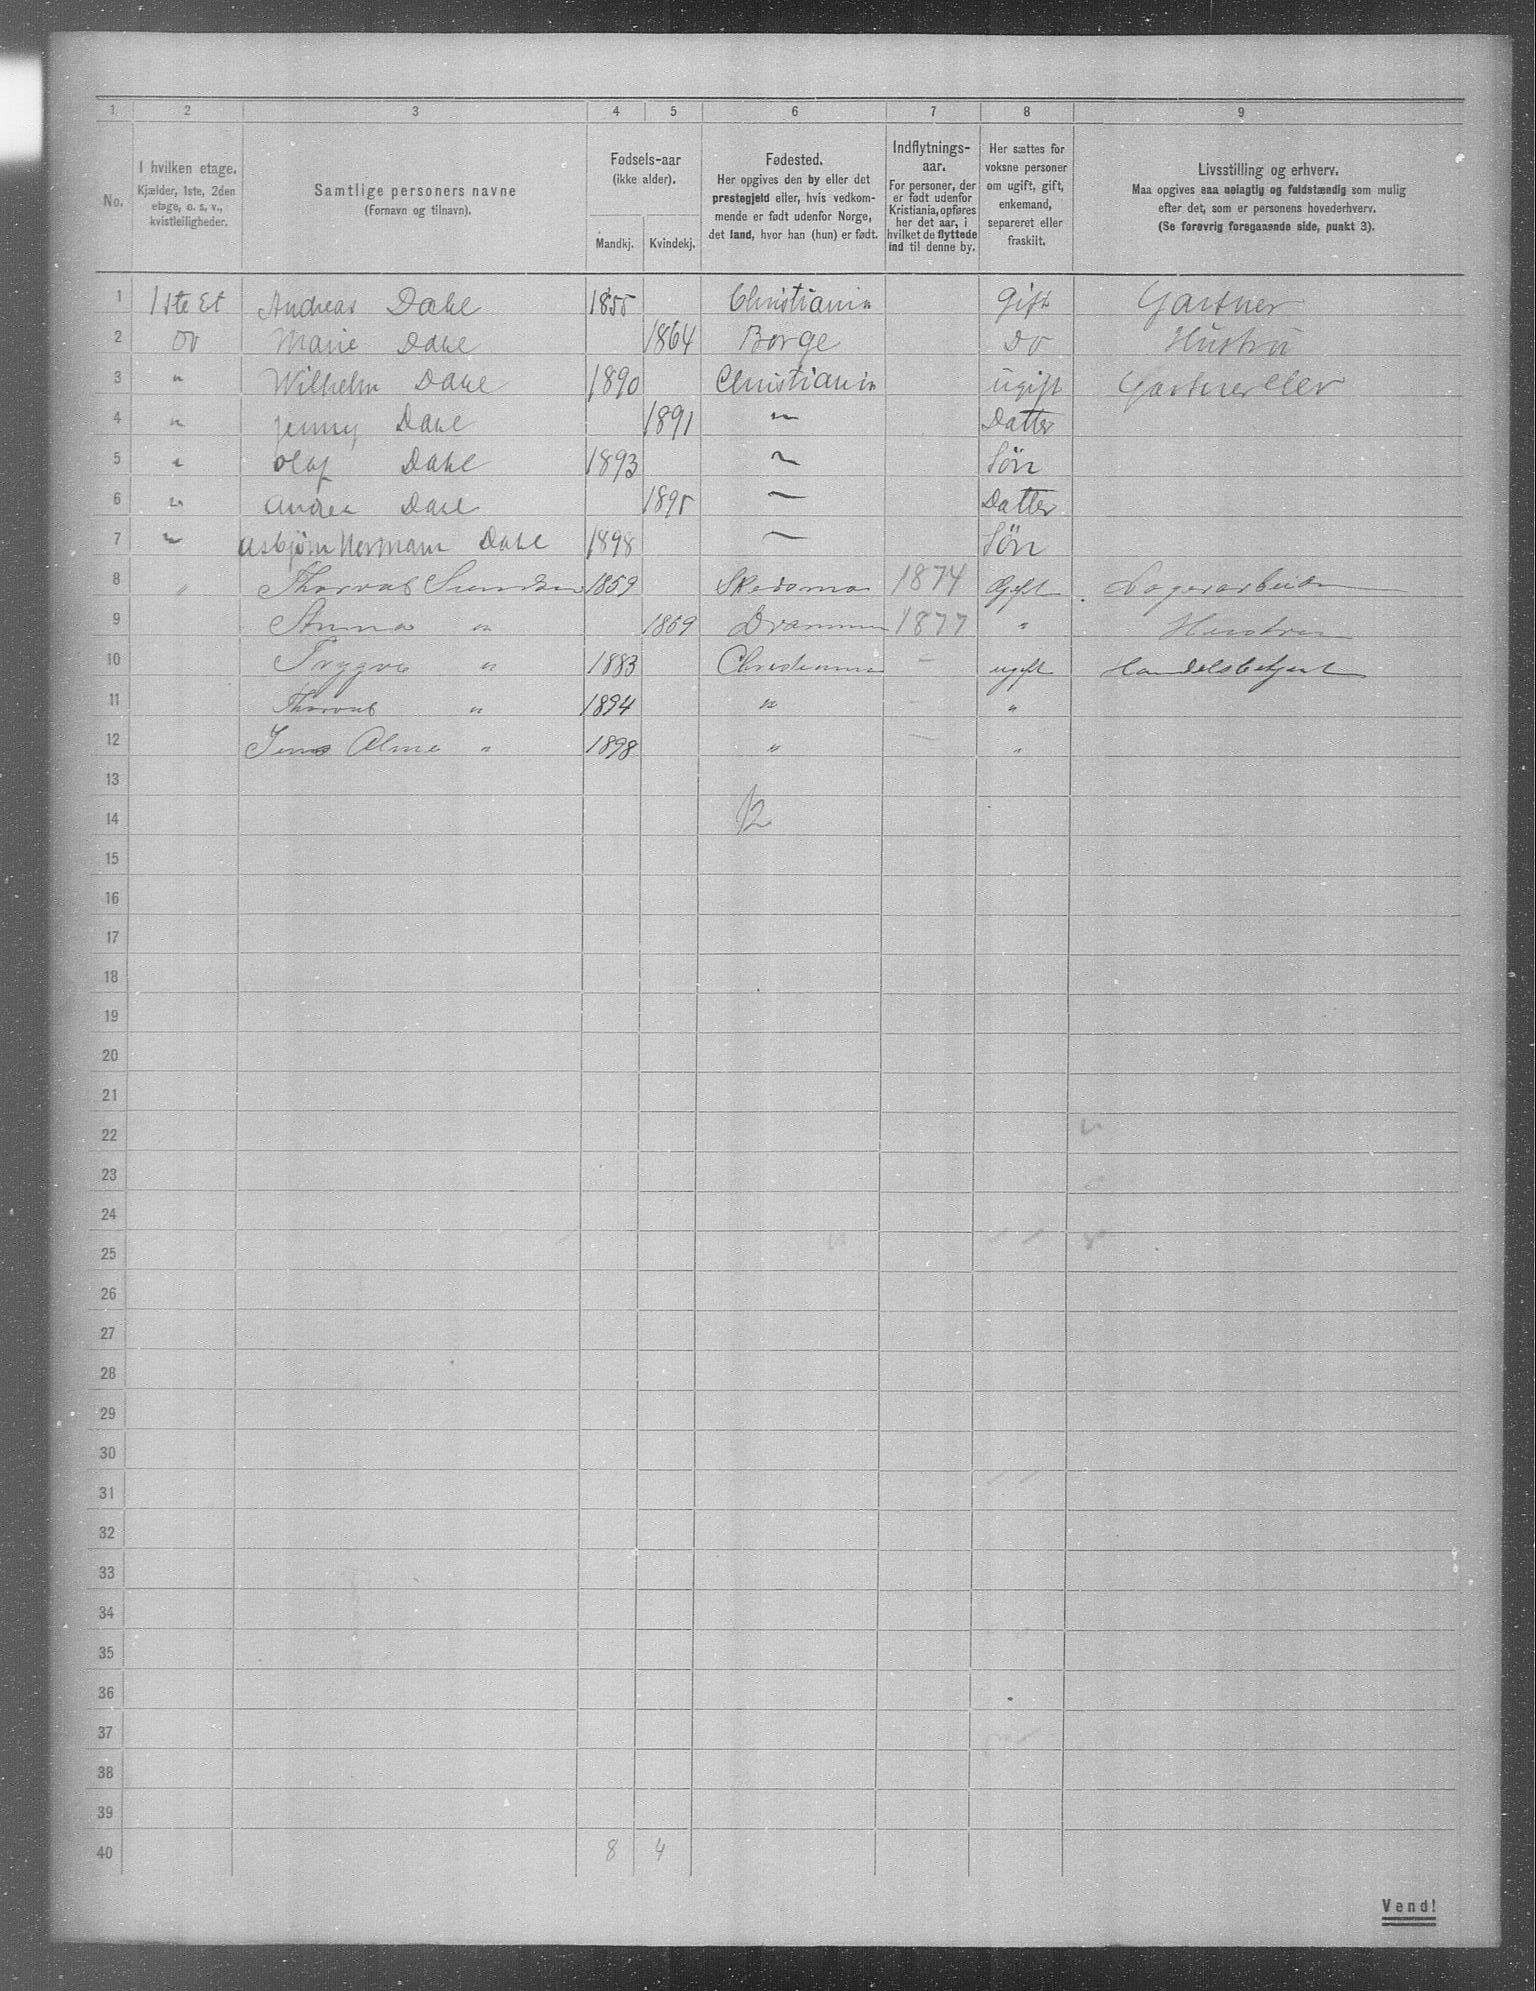 1 2 3 4 5 6 7 8 9
No.
I hvilken etage.
Kjælder, 1ste, 2den
etage, o. s. v.,
kvistleiligheder.
Samtlige personers navne
(Fornavn og tilnavn).
Fødsels-aar
(ikke alder).
Mandkj. Kvindekj.
Fødested.
Her opgives den by eller det
prestegjeld eller, hvis vedkom-
mende er født udenfor Norge,
det land, hvor han (hun) er født.
Indflytnings-
aar.
For personer, der
er født udenfor
Kristiania, opføres
her det aar, i
hvilket de flyttede
ind til denne by.
Her sættes for
voksne personer
om ugift, gift,
enkemand,
separeret eller
fraskilt.
Livsstilling og erhverv.
Maa opgives saa nøiagtig og fuldstændig som mulig
efter det, som er personens hovederhverv.
(Se forøvrig foregaaende side, punkt 3).
1 1ste Et Andreas Dahl 1855 Christiania Gift Gartner
2 Do Marie Dahl 1864 Borge Do Hustru
3 " Wilhelm Dahl 1890 Christiania ugift Gartnerelev
4 " Jenny Dahl 1891 " Datter
5 " Olaf Dahl 1893 " Søn
6 " Andrea Dahl 1895 " Datter
7 " Asbjørn Hermann Dahl 1898 " Søn
8 " Thorvald 1859 Skedsmo 1874 Gift Lagerarbeider
9 Anna " 1859 Drammen 1877 " Hustru
10 Trygve " 1883 Christiania — ugift Handelsbetjent
11 Thorvald " 1894 " — "
12 Jens " 1898 " — "
13
14 12
15
16
17
18
19
20
21
22
23
24
25
26
27
28
29
30
31
32
33
34
35
36
37
38
39
40 8 4
Vend!